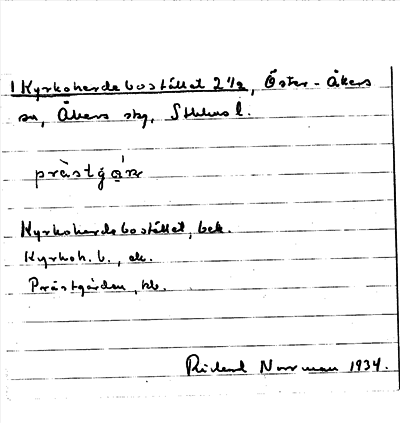 1 Kyrkoherdebostället 2 1/2, Öster-Åkers
sn, Åkers skg, Sthlms l.
prästgåɳ
Kyrkoherdebostället, bek.
Kyrkoh. b., ek.
Prästgården, kb.
Rickard Norrman 1934.